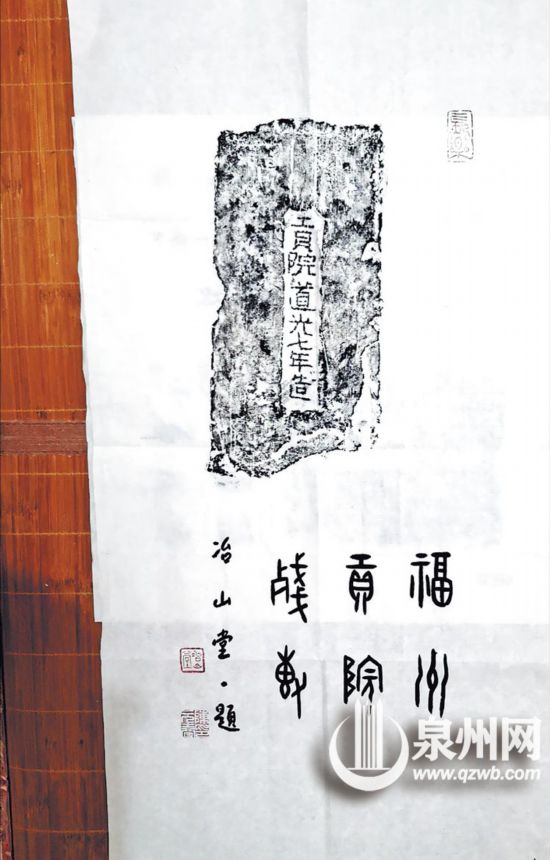 貢院道光七年造
福州
貢院
殘
冶山堂題
泉州网
www.qzwb.com